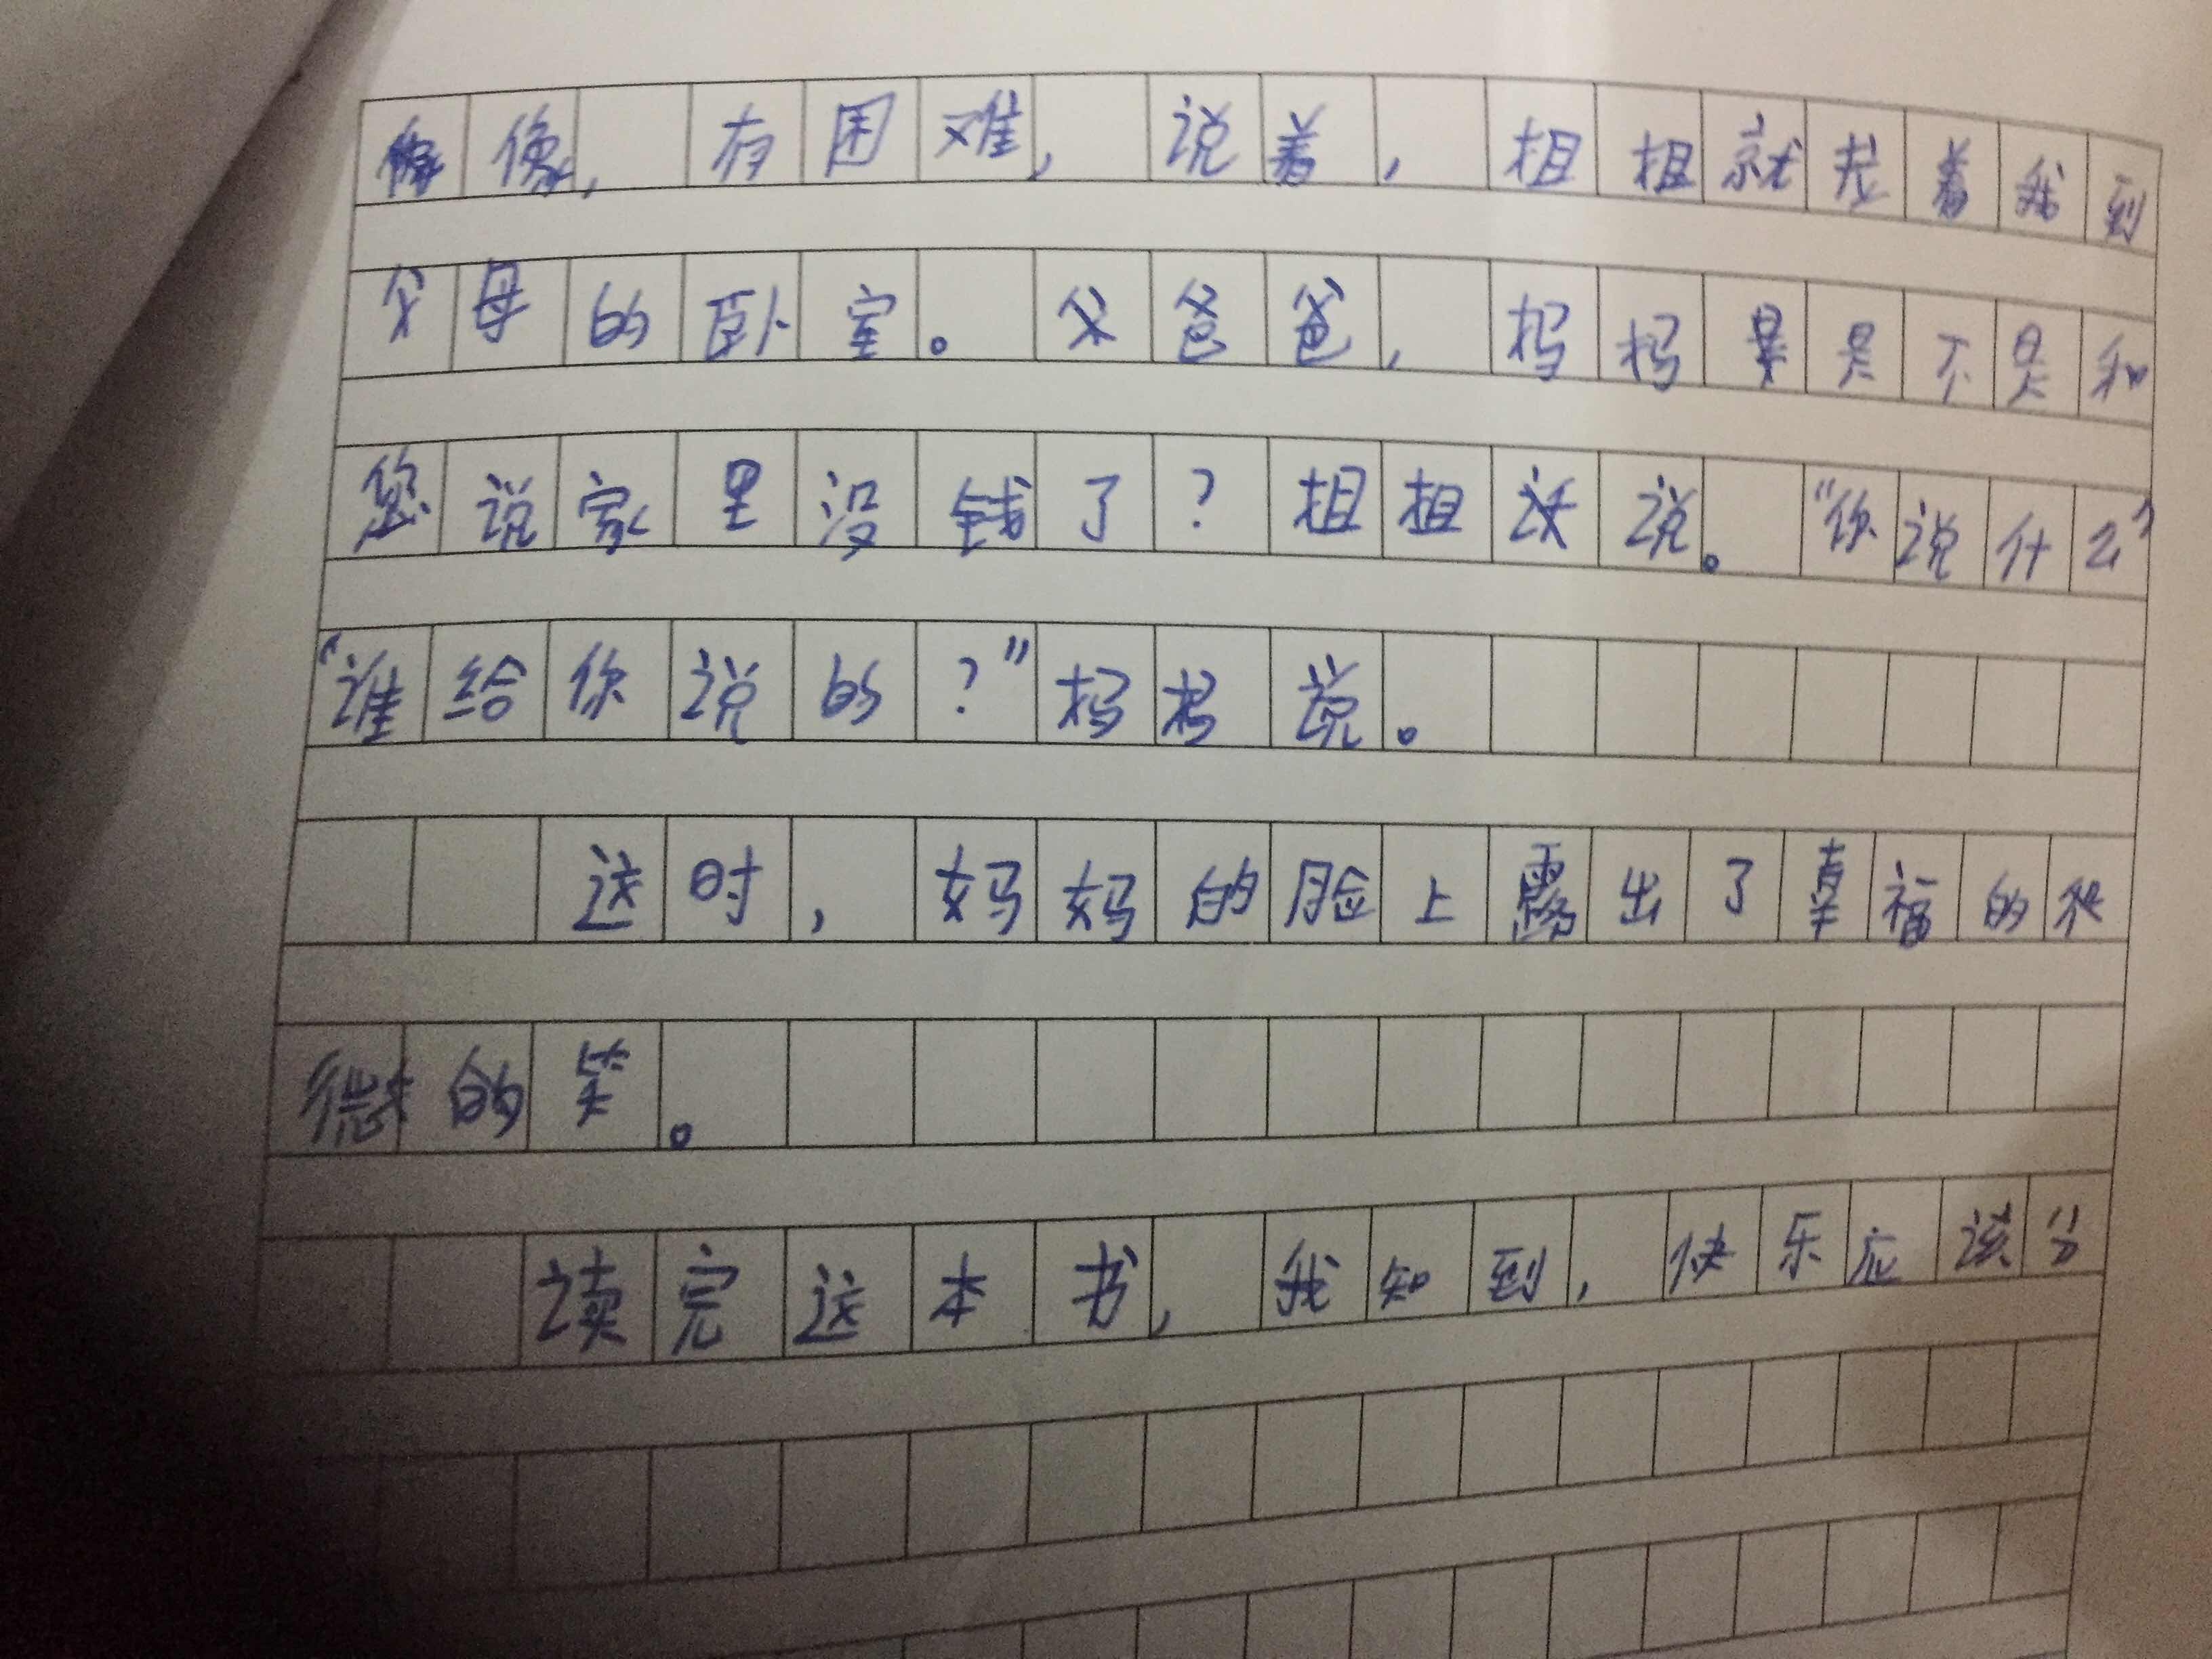 像,有困难,说着,姐姐就拉着我到
父母的卧室。父爸爸,妈妈是不是和
您说家里没钱了?姐姐说。“你说什么”
“谁给你说的?”妈妈说。
这时,妈妈的脸上露出了幸福的
微的笑。
读完这本书,我知到,快乐应该分